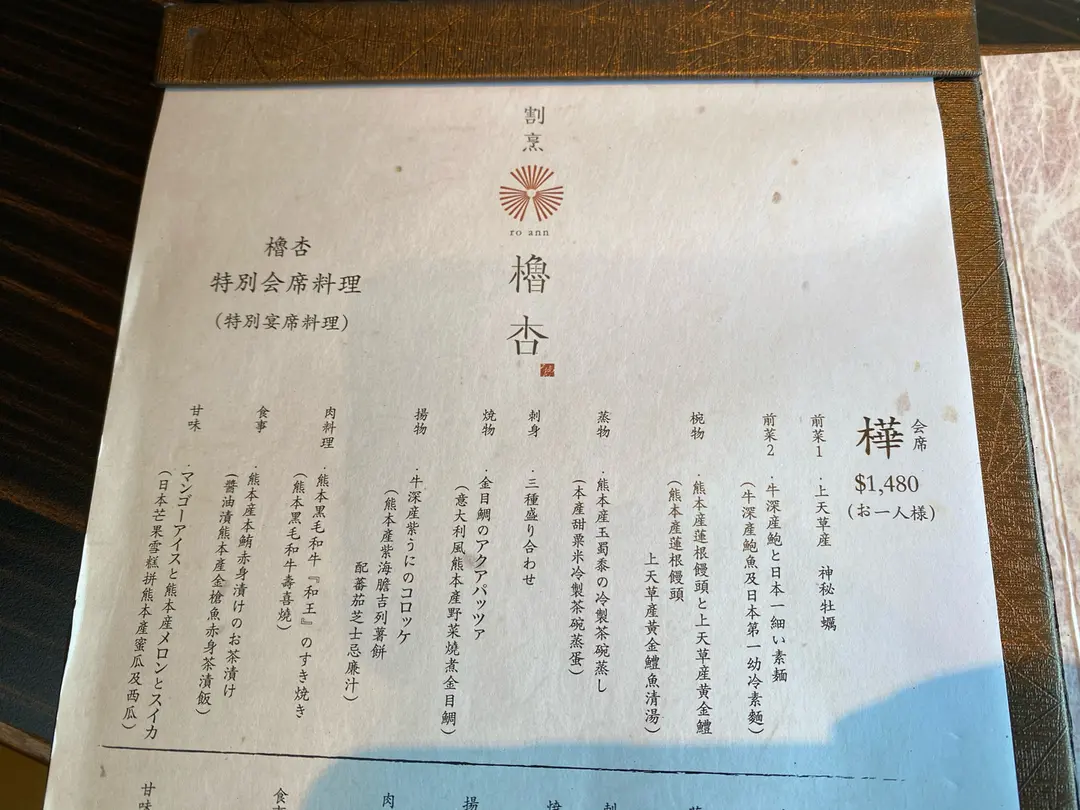 割烹
ro ann
櫓杏
櫓杏
特別会席料理
(特別宴席料理)
会席
樺
$1,480
(お一人様)
前菜1
・上天草産 神秘牡蠣
前菜2
・牛深産鮑と日本一細い素麺
(牛深產鮑魚及日本第一幼冷素麵)
椀物
・熊本産蓮根饅頭と上天草産黄金鱧
(熊本產蓮根饅頭
上天草產黃金鱧魚清湯)
蒸物
・熊本産玉蜀黍の冷製茶碗蒸し
(本產甜粟米冷製茶碗蒸蛋)
刺身
・三種盛り合わせ
焼物
・金目鯛のアクアパッツァ
(意大利風熊本產野菜燒煮金目鯛)
揚物
・牛深産紫うにのコロッケ
(熊本產紫海膽吉列薯餅
配蕃茄芝士忌廉汁)
肉料理
・熊本黒毛和牛『和王』のすき焼き
(熊本黑毛和牛壽喜燒)
食事
・熊本産本鮪赤身漬けのお茶漬け
(醬油漬熊本產金槍魚赤身茶漬飯)
甘味
・マンゴーアイスと熊本産メロンとスイカ
(日本芒果雪糕拼熊本產蜜瓜及西瓜)
肉
揚
甘味